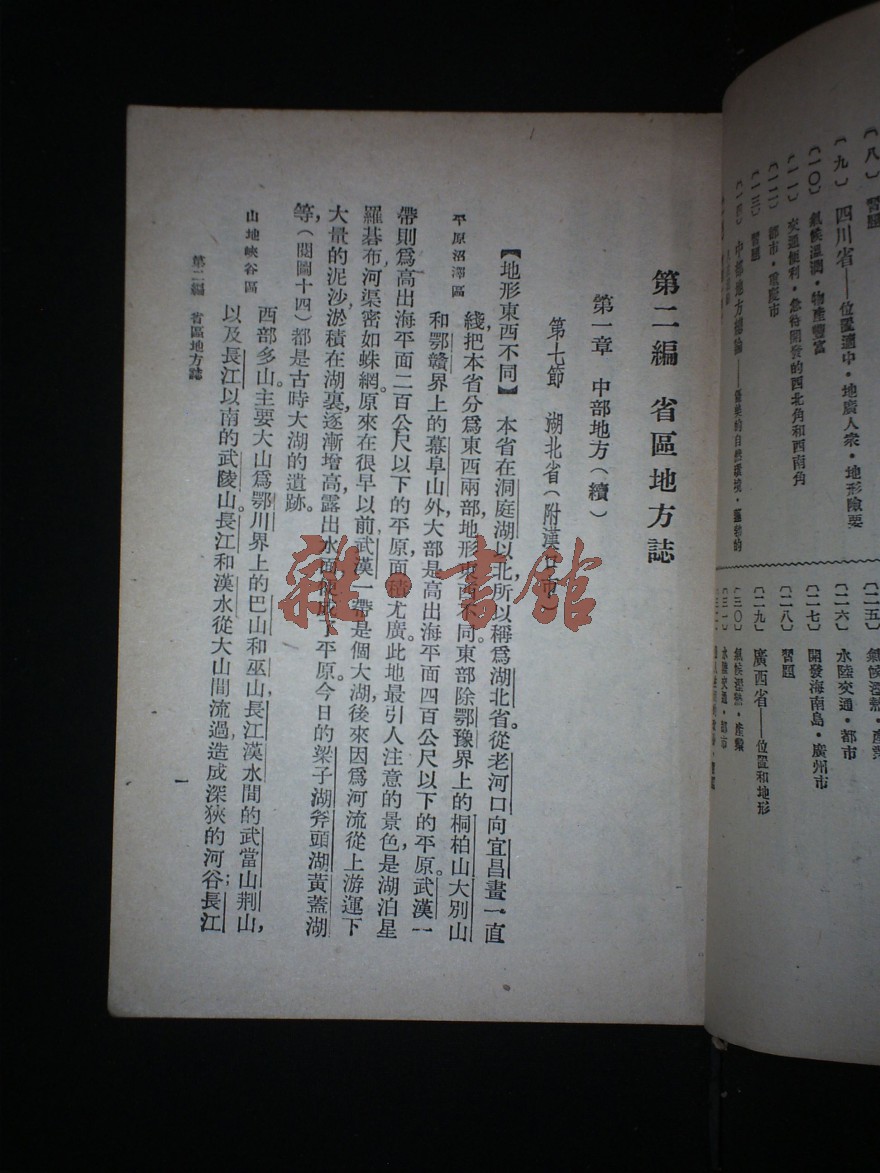 〔八〕 習題
〔九〕 四川省——位置適中·地廣人衆·地形險要
〔一〇〕 氣候溫潤·物產豐富
〔一一〕 交通便利·急待開發的西北角和西南角
〔一二〕 都市·重慶市
〔一三〕 習題
〔一四〕 中部地方總論
〔二五〕 氣候溼熱·產業
〔二六〕 水陸交通·都市
〔二七〕 開發海南島·廣州市
〔二八〕 習題
〔二九〕 廣西省——位置和地形
〔三〇〕 氣候溼熱·產業
〔三一〕 水陸交通·都市
第二編 省區地方誌
第一章 中部地方(續)
第七節 湖北省(附漢口市)
【地形東西不同】 本省在洞庭湖以北,所以稱爲湖北省。從老河口向宜昌畫一直
綫,把本省分爲東西兩部,地形東西不同。東部除鄂豫界上的桐柏山大別山
平原沼澤區
和鄂贛界上的幕阜山外,大部是高出海平面四百公尺以下的平原。武漢一
帶則爲高出海平面二百公尺以下的平原,面積尤廣。此地最引人注意的景色,是湖泊星
羅碁布,河渠密如蛛網。原來在很早以前,武漢一帶是個大湖,後來因爲河流從上游運下
大量的泥沙,淤積在湖裏,逐漸增高,露出水面,便成了平原。今日的梁子湖斧頭湖黃蓋湖
等,(閱圖十四)都是古時大湖的遺跡。
山地峽谷區
西部多山。主要大山爲鄂川界上的巴山和巫山,長江漢水間的武當山荆山,
以及長江以南的武陵山。長江和漢水從大山間流過,造成深狹的河谷;長江
第二編 省區地方誌
一
雜·書館